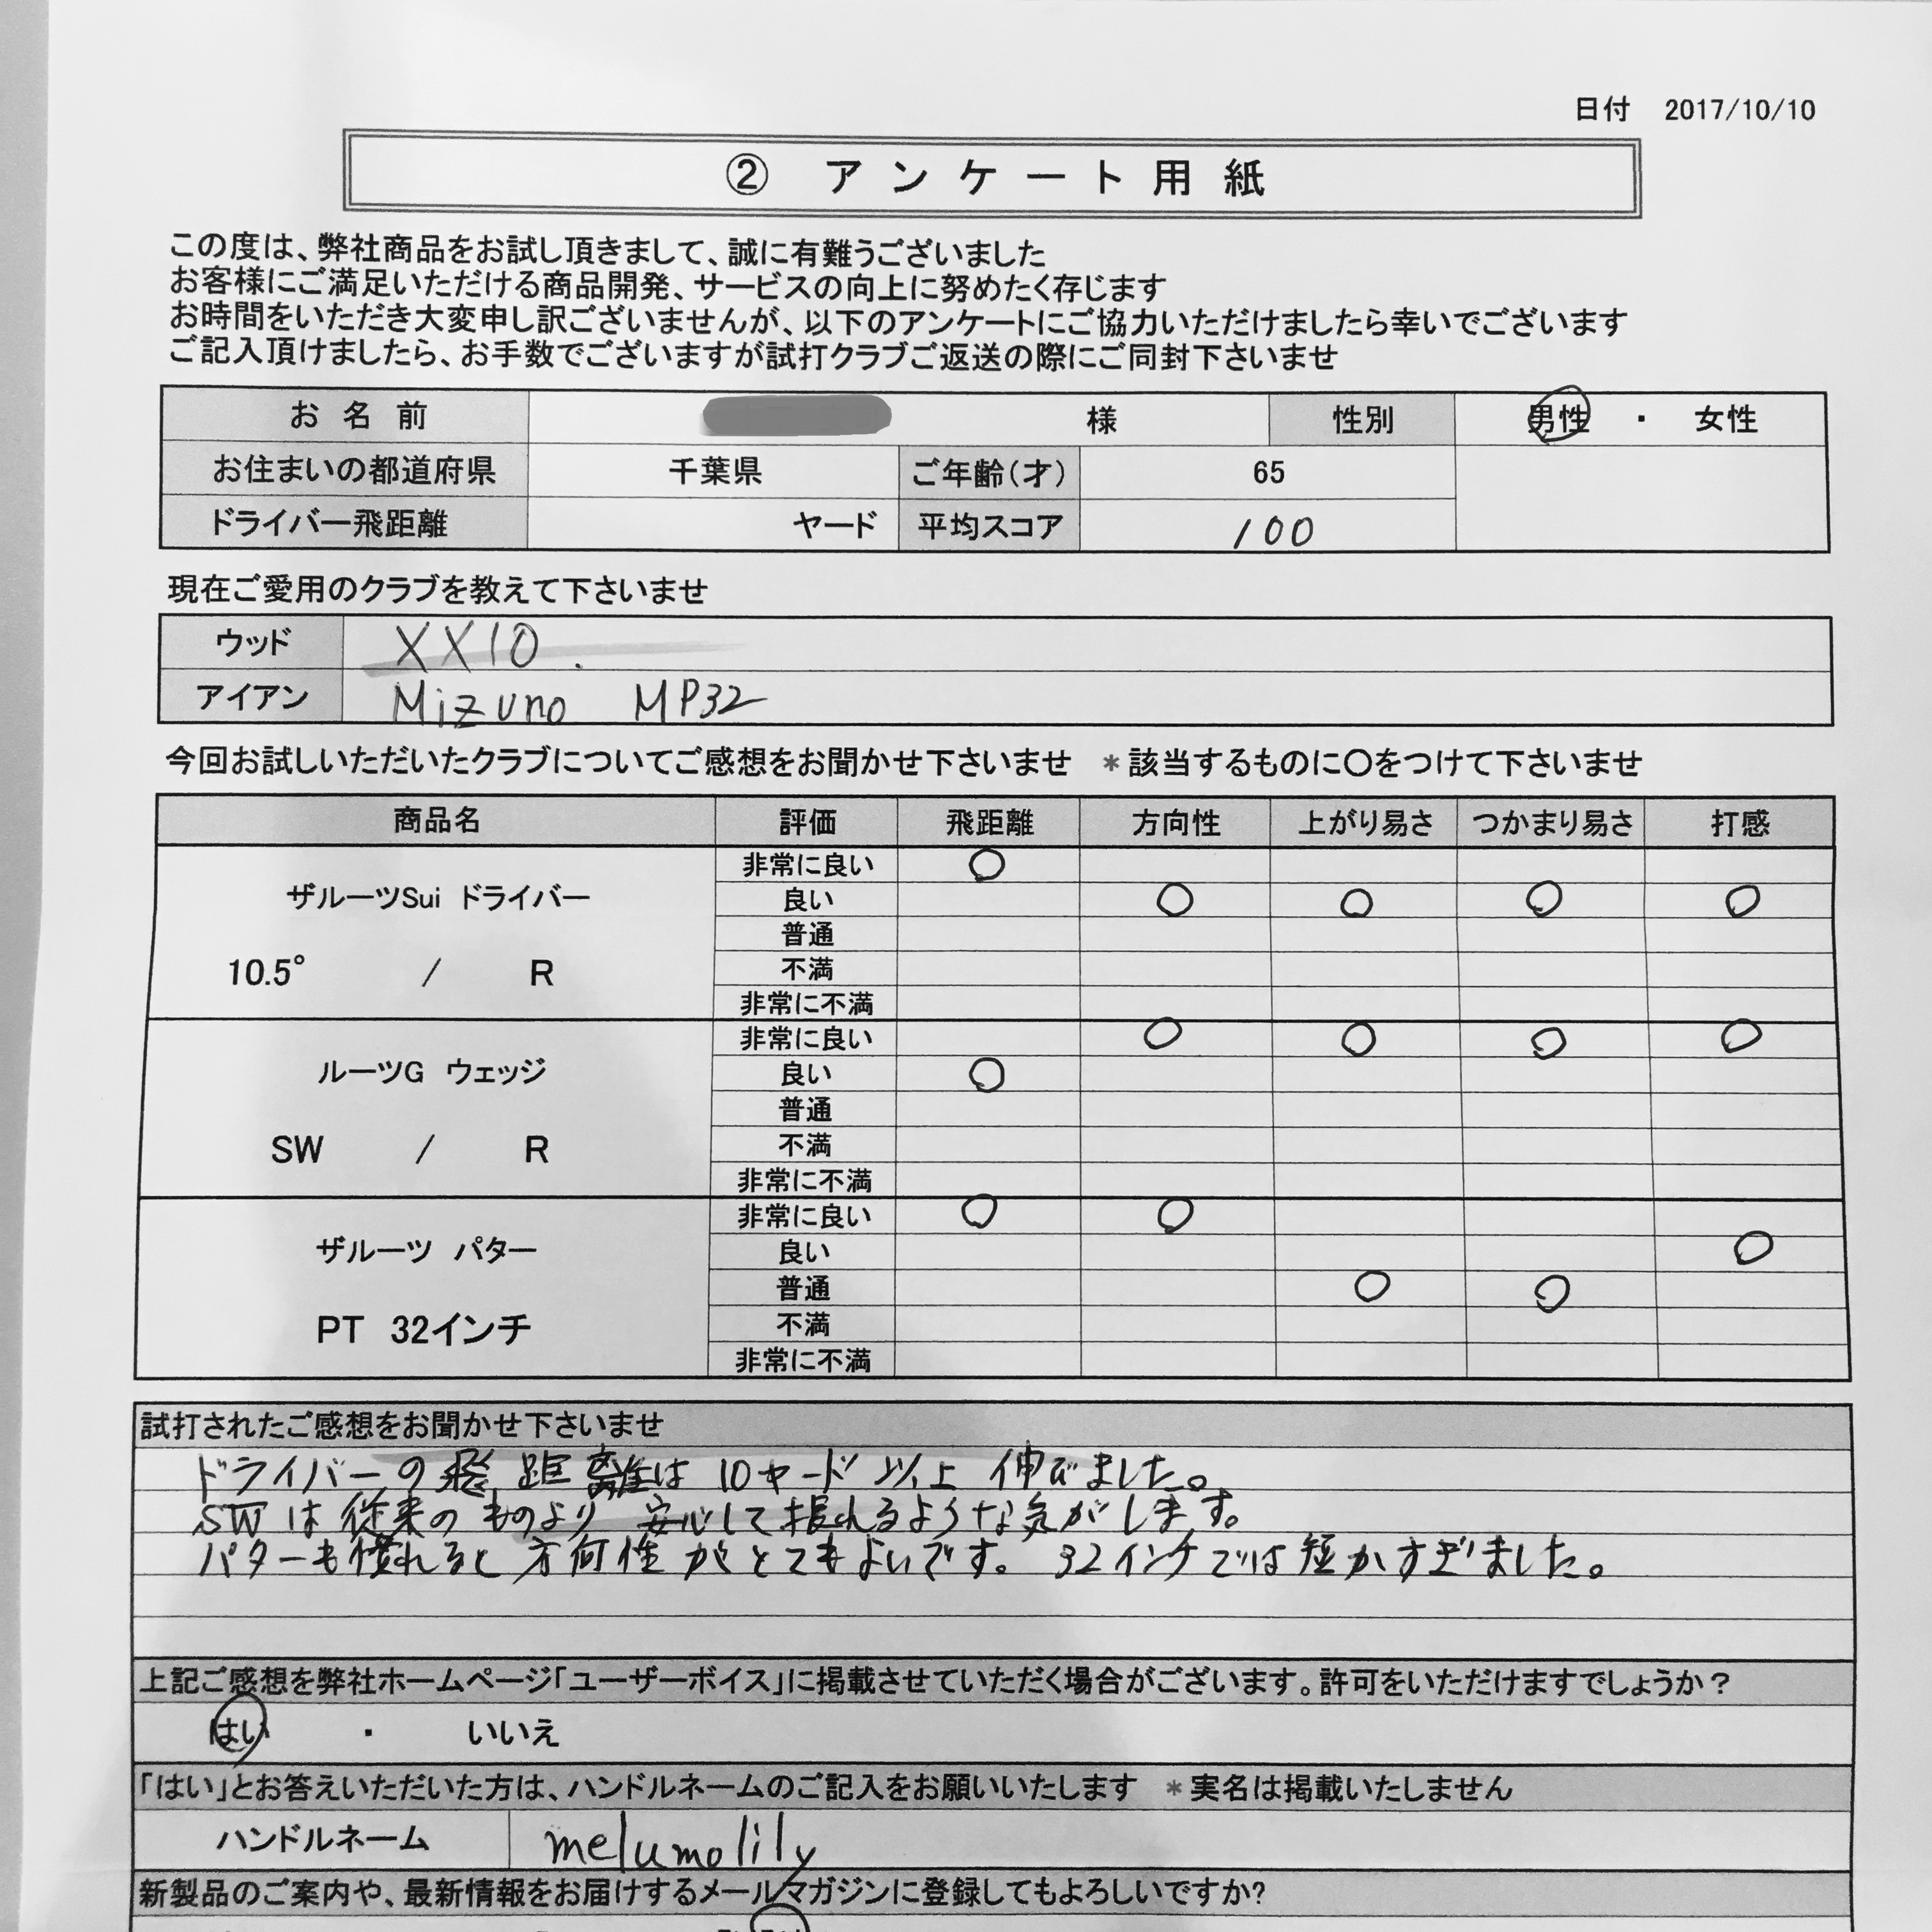 日付 2017/10/10
② アンケート用紙
この度は、弊社商品をお試し頂きまして、誠に有難うございました
お客様にご満足いただける商品開発、サービスの向上に努めたく存じます
お時間をいただき大変申し訳ございませんが、以下のアンケートにご協力いただけましたら幸いでございます
ご記入頂けましたら、お手数でございますが試打クラブご返送の際にご同封下さいませ
お名前 様 性別 男性 ・ 女性
お住まいの都道府県 千葉県 ご年齢(才) 65
ドライバー飛距離 ヤード 平均スコア 100
現在ご愛用のクラブを教えて下さいませ
ウッド XX10.
アイアン Mizuno MP32
今回お試しいただいたクラブについてご感想をお聞かせ下さいませ *該当するものに○をつけて下さいませ
商品名 評価 飛距離 方向性 上がり易さ つかまり易さ 打感
ザルーツSui ドライバー
10.5° / R
非常に良い ○
良い ○ ○ ○ ○
普通
不満
非常に不満
ルーツG ウェッジ
SW / R
非常に良い ○ ○ ○ ○
良い ○
普通
不満
非常に不満
ザルーツ パター
PT 32インチ
非常に良い ○ ○
良い ○
普通 ○ ○
不満
非常に不満
試打されたご感想をお聞かせ下さいませ
ドライバーの飛距離は10ヤード以上 伸びました。
SWは従来のものより 安心して振れるような気がします。
パターも慣れると方向性がとてもよいです。 32インチでは短かすぎました。
上記ご感想を弊社ホームページ「ユーザーボイス」に掲載させていただく場合がございます。許可をいただけますでしょうか?
はい ・ いいえ
「はい」とお答えいただいた方は、ハンドルネームのご記入をお願いいたします *実名は掲載いたしません
ハンドルネーム melumolily
新製品のご案内や、最新情報をお届けするメールマガジンに登録してもよろしいですか?